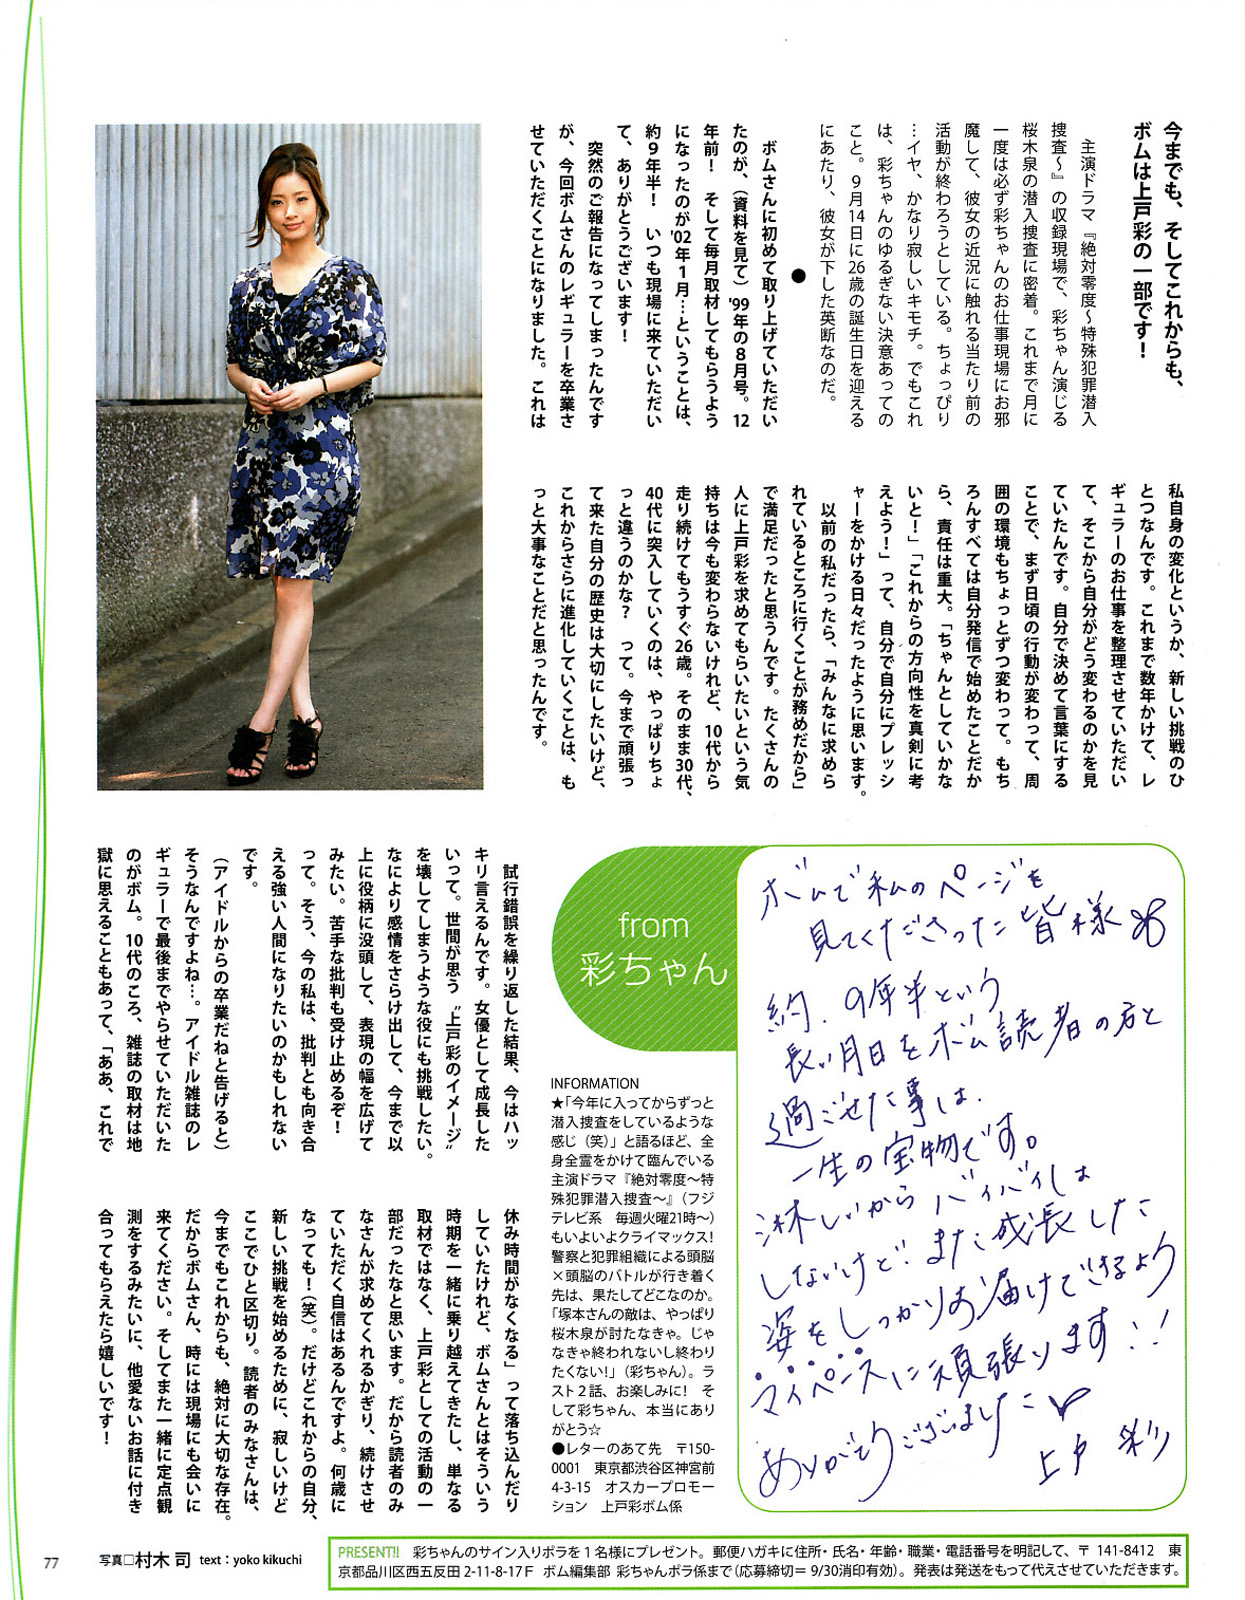 今までも、そしてこれからも、
ボムは上戸彩の一部です！
主演ドラマ『絶対零度〜特殊犯罪潜入
捜査〜』の収録現場で、彩ちゃん演じる
桜木泉の潜入捜査に密着。これまで月に
一度は必ず彩ちゃんのお仕事現場にお邪
魔して、彼女の近況に触れる当たり前の
活動が終わろうとしている。ちょっぴり
…イヤ、かなり寂しいキモチ。でもこれ
は、彩ちゃんのゆるぎない決意あっての
こと。9月14日に26歳の誕生日を迎える
にあたり、彼女が下した英断なのだ。
●
ボムさんに初めて取り上げていただい
たのが、（資料を見て）'99年の8月号。12
年前！　そして毎月取材してもらうよう
になったのが'02年1月…ということは、
約9年半！　いつも現場に来ていただい
て、ありがとうございます！
突然のご報告になってしまったんです
が、今回ボムさんのレギュラーを卒業さ
せていただくことになりました。これは
私自身の変化というか、新しい挑戦のひ
とつなんです。これまで数年かけて、レ
ギュラーのお仕事を整理させていただい
て、そこから自分がどう変わるのかを見
ていたんです。自分で決めて言葉にする
ことで、まず日頃の行動が変わって、周
囲の環境もちょっとずつ変わって。もち
ろんすべては自分発信で始めたことだか
ら、責任は重大。「ちゃんとしていかな
いと！」「これからの方向性を真剣に考
えよう！」って、自分で自分にプレッシ
ャーをかける日々だったように思います。
以前の私だったら、「みんなに求めら
れているところに行くことが務めだから」
で満足だったと思うんです。たくさんの
人に上戸彩を求めてもらいたいという気
持ちは今も変わらないけれど、10代から
走り続けてもうすぐ26歳。そのまま30代、
40代に突入していくのは、やっぱりちょ
っと違うのかな？　って。今まで頑張っ
て来た自分の歴史は大切にしたいけど、
これからさらに進化していくことは、も
っと大事なことだと思ったんです。
試行錯誤を繰り返した結果、今はハッ
キリ言えるんです。女優として成長した
いって。世間が思う〝上戸彩のイメージ〟
を壊してしまうような役にも挑戦したい。
なにより感情をさらけ出して、今まで以
上に役柄に没頭して、表現の幅を広げて
みたい。苦手な批判も受け止めるぞ！
って。そう、今の私は、批判とも向き合
える強い人間になりたいのかもしれない
です。
（アイドルからの卒業だねと告げると）
そうなんですよね…。アイドル雑誌のレ
ギュラーで最後までやらせていただいた
のがボム。10代のころ、雑誌の取材は地
獄に思えることもあって、「ああ、これで
休み時間がなくなる」って落ち込んだり
していたけれど、ボムさんとはそういう
時期を一緒に乗り越えてきたし、単なる
取材ではなく、上戸彩としての活動の一
部だったなと思います。だから読者のみ
なさんが求めてくれるかぎり、続けさせ
ていただく自信はあるんですよ。何歳に
なっても！（笑）。だけどこれからの自分、
新しい挑戦を始めるために、寂しいけど
ここでひと区切り。読者のみなさんは、
今までもこれからも、絶対に大切な存在。
だからボムさん、時には現場にも会いに
来てください。そしてまた一緒に定点観
測をするみたいに、他愛ないお話に付き
合ってもらえたら嬉しいです！
from
彩ちゃん
ボムで私のページを
見てくださった皆様
約、9年半という
長い月日をボム読者の方と
過ごせた事は、
一生の宝物です。
淋しいからバイバイは
しないけど！また成長した
姿をしっかりお届けできるよう
マイペースに頑張ります！！
ありがとうございました♥
上戸 彩
INFORMATION
★「今年に入ってからずっと
潜入捜査をしているような
感じ（笑）」と語るほど、全
身全霊をかけて臨んでいる
主演ドラマ『絶対零度〜特
殊犯罪潜入捜査〜』（フジ
テレビ系　毎週火曜21時〜）
もいよいよクライマックス！
警察と犯罪組織による頭脳
×頭脳のバトルが行き着く
先は、果たしてどこなのか。
「塚本さんの敵は、やっぱり
桜木泉が討たなきゃ。じゃ
なきゃ終われないし終わり
たくない！」（彩ちゃん）。ラ
スト2話、お楽しみに！　そ
して彩ちゃん、本当にあり
がとう☆
●レターのあて先　〒150-
0001　東京都渋谷区神宮前
4-3-15　オスカープロモー
ション　上戸彩ボム係
PRESENT!!　彩ちゃんのサイン入りポラを1名様にプレゼント。郵便ハガキに住所・氏名・年齢・職業・電話番号を明記して、〒 141-8412　東
京都品川区西五反田 2-11-8-17F　ボム編集部 彩ちゃんポラ係まで（応募締切＝ 9/30消印有効）。発表は発送をもって代えさせていただきます。
77　写真□村木 司　text：yoko kikuchi